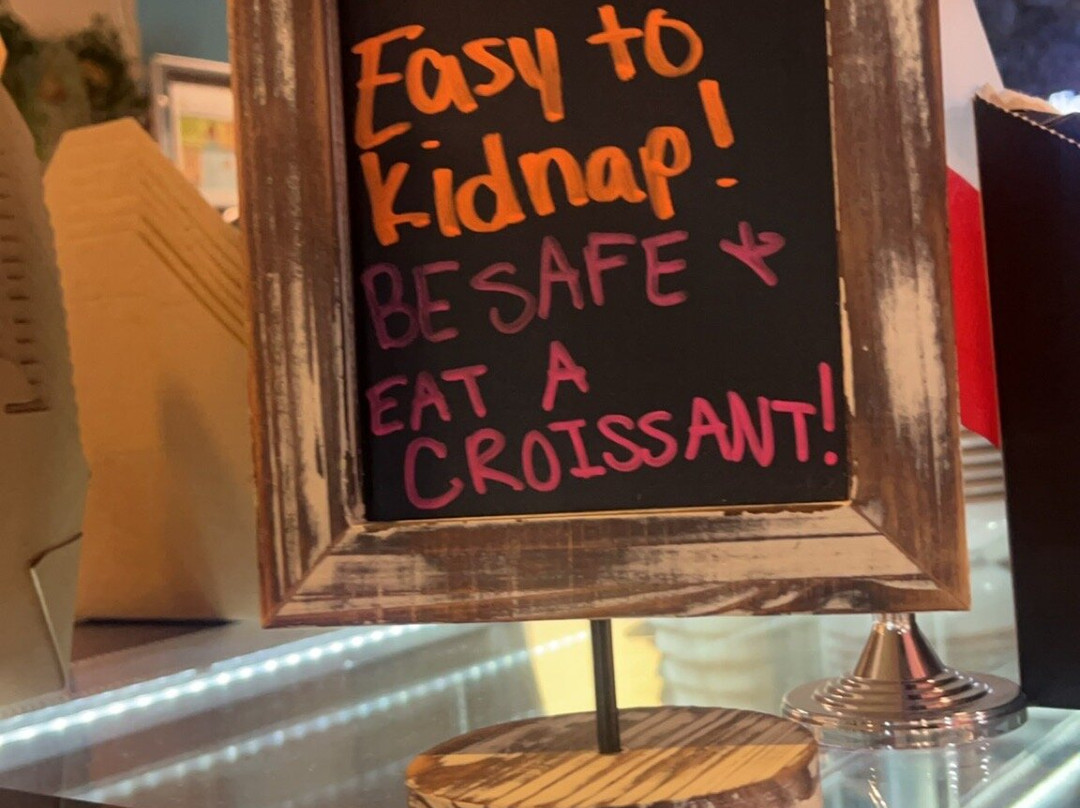 Easy to
kidnap!
BE SAFE &
EAT A
CROISSANT!